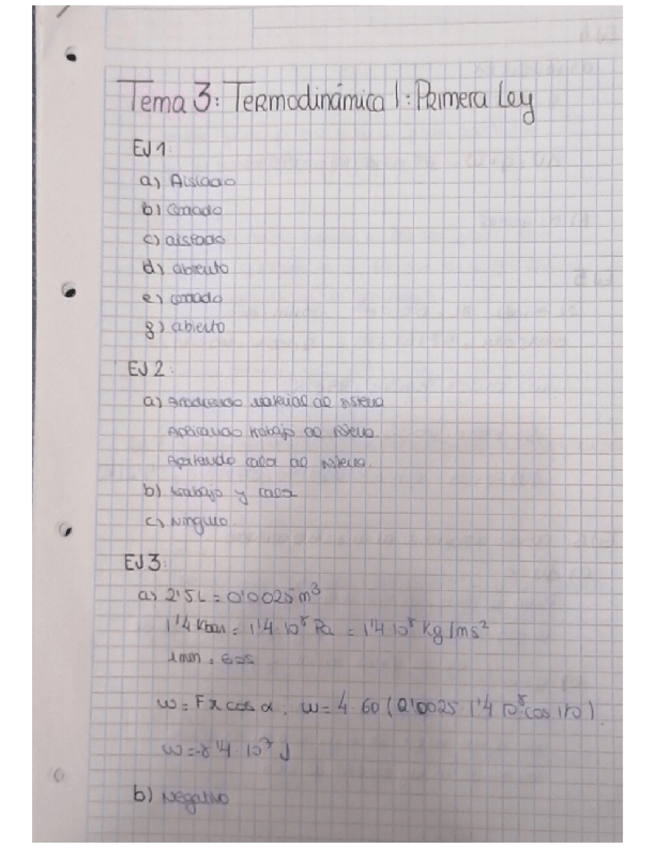 Tema 3: Termodinámica 1: Primera Ley
EJ 1:
a) Aislado
b) cerrado
c) aislado
d) abierto
e) cerrado
g) abierto
EJ 2:
a) Añadiendo material al sistema
Aplicando trabajo al sistema
Aportando calor al sistema.
b) trabajo y calor
c) Ninguno
EJ 3:
a) 2'5 L = 0'0025 m³
1'4 Kbar = 1'4 · 10⁸ Pa = 1'4 10⁸ Kg/ms²
1 min = 60s
W = F x cos α. W = 4 · 60 (0'0025 · 1'4 10⁸ cos 180).
W = -8'4 · 10⁷ J
b) Negativo